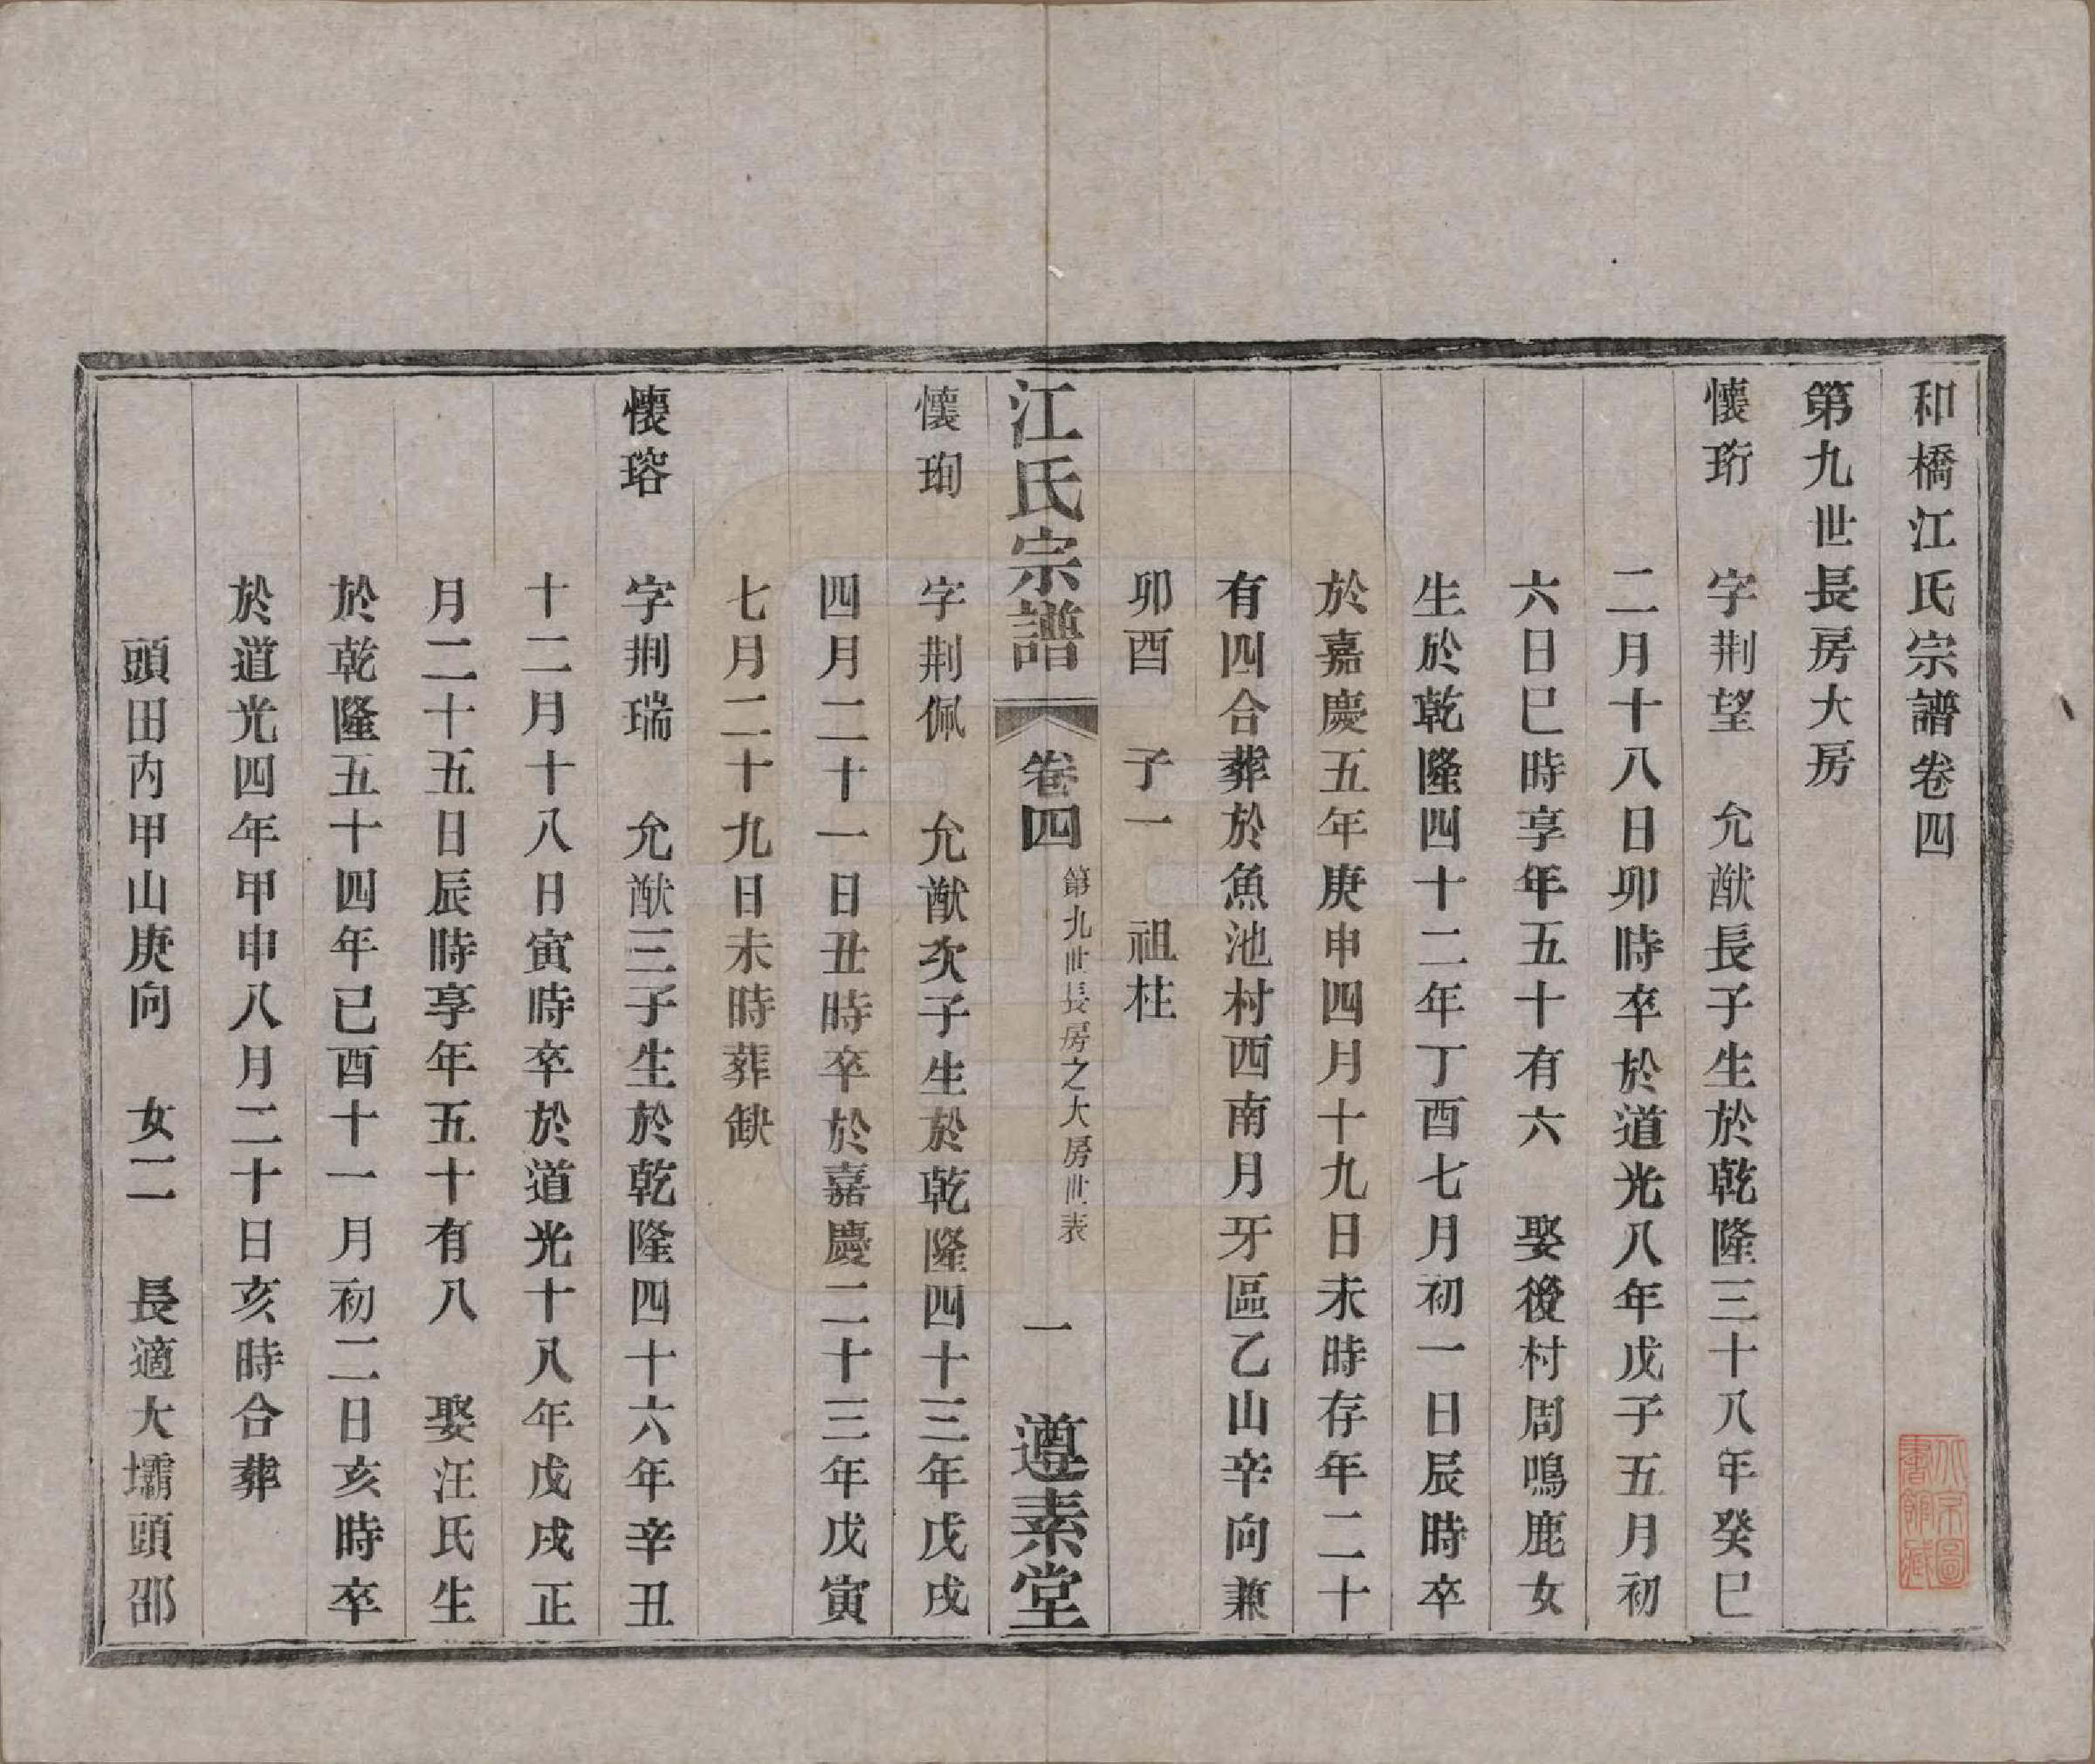 和橋江氏宗譜卷四
第九世長房大房
懷珩　字荆望　允猷長子生於乾隆三十八年癸巳
二月十八日卯時卒於道光八年戊子五月初
六日巳時享年五十有六　娶後村周鳴鹿女
生於乾隆四十二年丁酉七月初一日辰時卒
於嘉慶五年庚申四月十九日未時存年二十
有四合葬於魚池村西南月牙區乙山辛向兼
卯酉　子一　祖柱
江氏宗譜　卷四　第九世長房之大房世表　一　遵素堂
懷珣　字荆佩　允猷次子生於乾隆四十三年戊戌
四月二十一日丑時卒於嘉慶二十三年戊寅
七月二十九日未時葬缺
懷瑢　字荆瑞　允猷三子生於乾隆四十六年辛丑
十二月十八日寅時卒於道光十八年戊戌正
月二十五日辰時享年五十有八　娶汪氏生
於乾隆五十四年己酉十一月初二日亥時卒
於道光四年甲申八月二十日亥時合葬
頭田內甲山庚向　女二　長適大壩頭邵